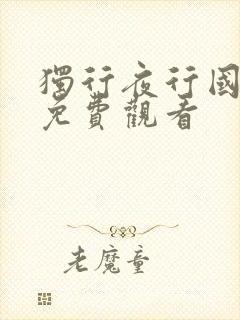 獨行夜行國
免費觀看
老魔童